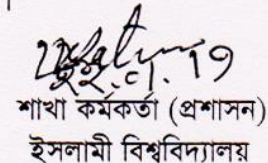 ২২.৭.১৭
শাখা কর্মকর্তা (প্রশাসন)
ইসলামী বিশ্ববিদ্যালয়